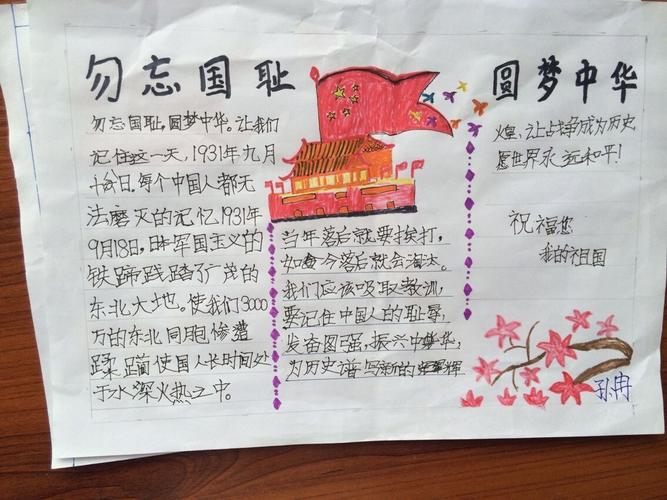 勿忘国耻
圆梦中华
勿忘国耻,圆梦中华。让我们
记住这一天,1931年九月
十八日。每个中国人都无
法磨灭的记忆1931年
9月18日,日本军国主义的
铁蹄践踏了广茂的
东北大地。使我们3000
万的东北同胞惨遭
蹂躏使国人长时间处
于水深火热之中。
当年落后就要挨打,
如今落后就会淘汰。
我们应该吸取教训,
要记住中国人的耻辱,
发奋图强,振兴中华,
为历史谱写新的辉
煌、让战争成为历史
愿世界永远和平!
祝福您
我的祖国
孙冉